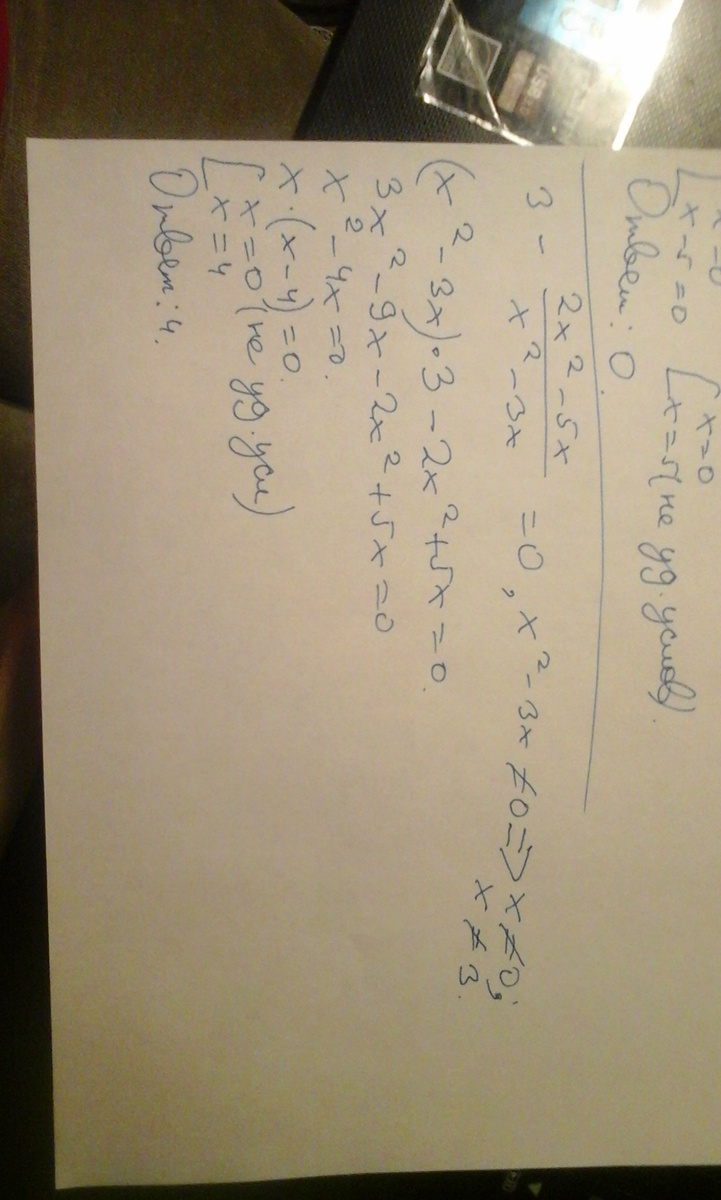 [ x=0
x-5=0 [ x=0
x=5 (не уд. услов).
Ответ: 0
3 - (2x² - 5x)/(x² - 3x) = 0, x² - 3x ≠ 0 => x ≠ 0;
x ≠ 3.
(x² - 3x)·3 - 2x² + 5x = 0.
3x² - 9x - 2x² + 5x = 0
x² - 4x = 0.
x·(x-4) = 0.
[ x = 0 (не уд. усл)
x = 4
Ответ: 4.